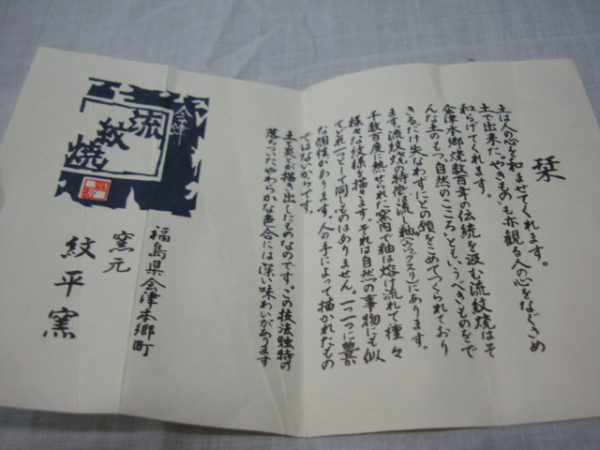 栞
土は人の心を和ませてくれます。
土で出来たやきものも亦観る人の心をなぐさめ
和らげてくれます。
会津本郷焼数百年の伝統を汲む流紋焼はそ
んな土のもつ、自然のこころ、ともいうべきものをで
きるだけ失なわずにとの願をこめてつくられており
ます。流紋焼の特徴は流し釉(ウワグスリ)にあります。
千数百度に熱せられた窯内で釉は熔け流れて種々
様々な紋様を描きます。それは自然の事物にも似
ていれ一つとして同じものはありません。一つ一つに豊か
な個性があります。人の手によって描かれたもの
ではないからです。
土と炎が描き出したものなのです。この技法独特の
落ちついたやわらかな色合には深い味わいがあります
会津
流紋焼
福島県会津本郷町
窯元
紋平窯